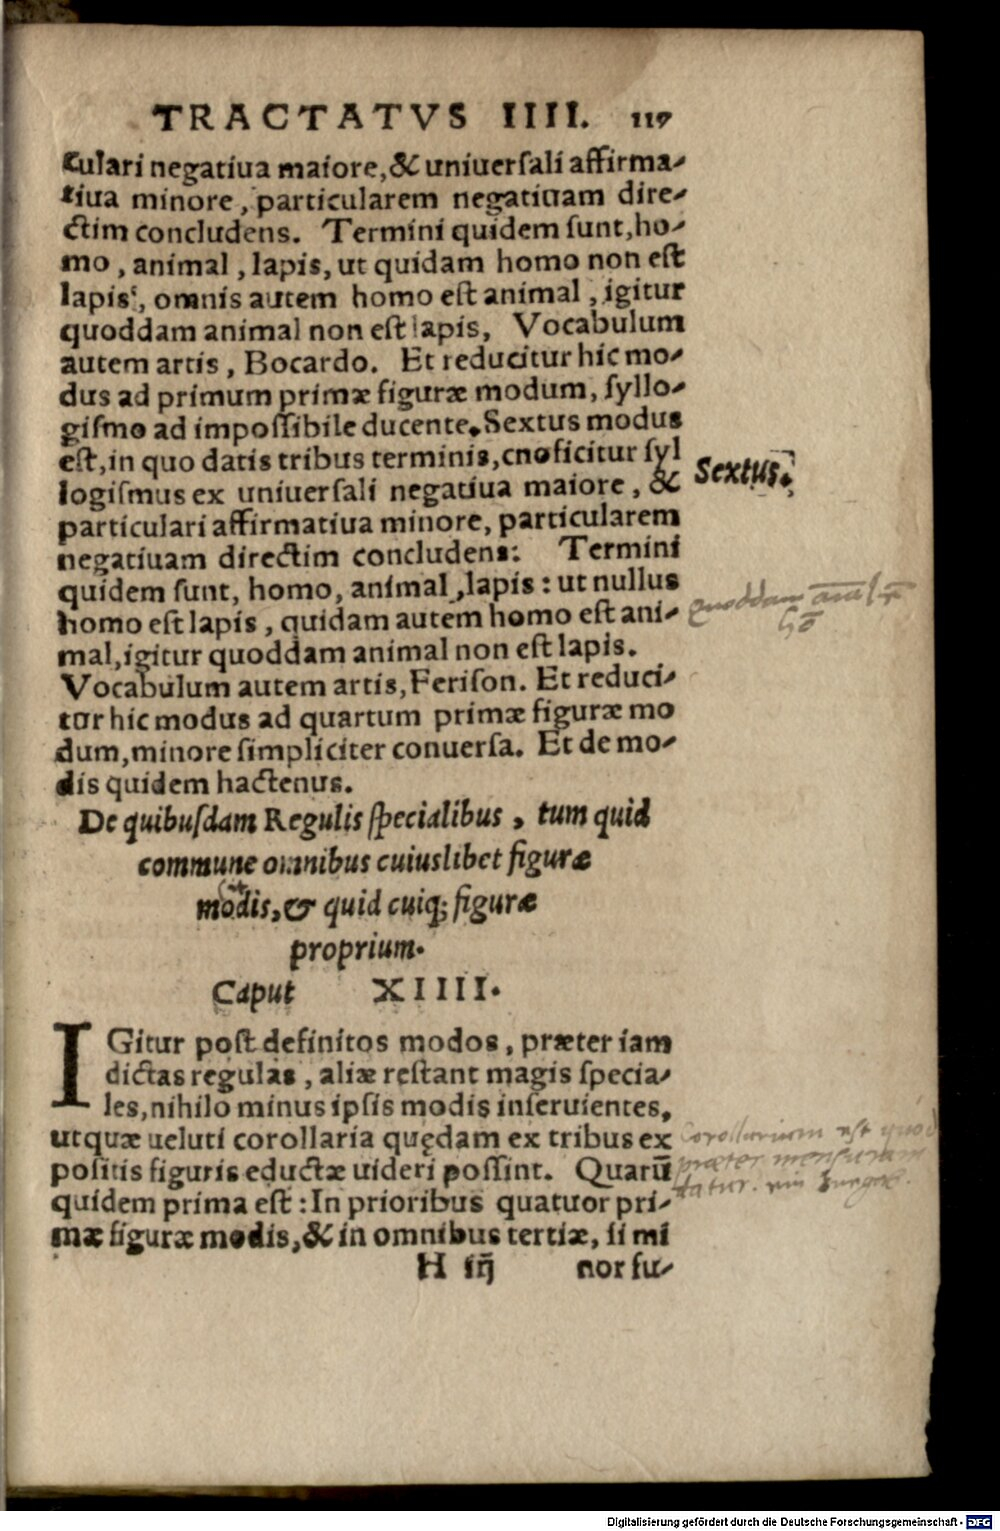 TRACTATVS IIII. 117
culari negatiua maiore, & uniuerſali affirma-
tiua minore, particularem negatiuam dire-
ctim concludens. Termini quidem ſunt, ho-
mo, animal, lapis, ut quidam homo non eſt
lapis, omnis autem homo eſt animal, igitur
quoddam animal non eſt lapis, Vocabulum
autem artis, Bocardo. Et reducitur hic mo-
dus ad primum primæ figuræ modum, ſyllo-
giſmo ad impoſſibile ducente. Sextus modus
eſt, in quo datis tribus terminis, cnoficitur ſyl
logiſmus ex uniuerſali negatiua maiore, &
Sextus.
particulari affirmatiua minore, particularem
negatiuam directim concludens: Termini
quidem ſunt, homo, animal, lapis: ut nullus
homo eſt lapis, quidam autem homo eſt ani-
quoddam
mal, igitur quoddam animal non eſt lapis.
Vocabulum autem artis, Feriſon. Et reduci-
tur hic modus ad quartum primæ figuræ mo
dum, minore ſimpliciter conuerſa. Et de mo-
dis quidem hactenus.
De quibuſdam Regulis ſpecialibus, tum quid
commune omnibus cuiuslibet figuræ
modis, & quid cuiq; figuræ
proprium.
Caput XIIII.
IGitur poſt definitos modos, præter iam
dictas regulas, aliæ reſtant magis ſpecia-
les, nihilo minus ipſis modis inſeruientes,
utquæ ueluti corollaria quędam ex tribus ex
poſitis figuris eductæ uideri poſſint. Quarū
quidem prima eſt: In prioribus quatuor pri-
mæ figuræ modis, & in omnibus tertiæ, ſi mi
Corollarium est quod
præter mensuram
datur.
H iij nor fu-
Digitalisierung gefördert durch die Deutsche Forschungsgemeinschaft - DFG